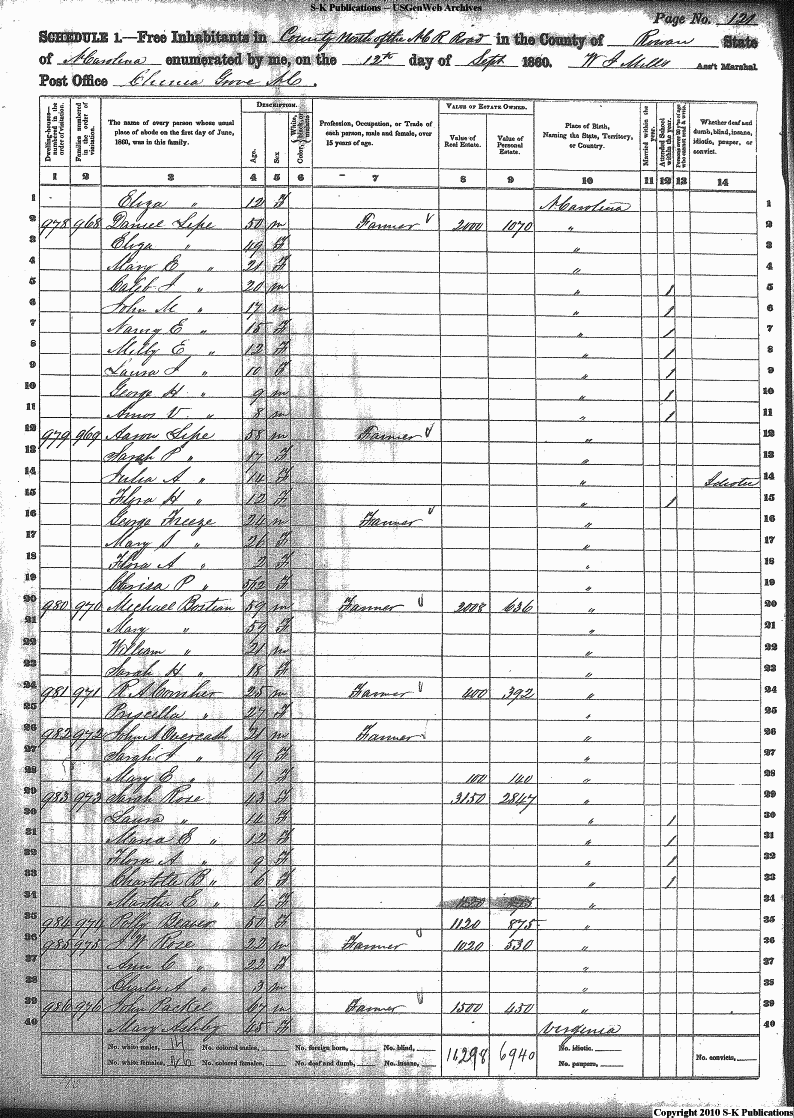 S-K Publications -- USGenWeb Archives
Page No. 121
SCHEDULE 1.—Free Inhabitants in County North of the N C R Road in the County of Rowan State
of N Carolina enumerated by me, on the 12th day of Sept 1860. W J Mills Ass't Marshal
Post Office China Grove N C.
Dwelling-houses—numbered in the order of visitation.
Families numbered in the order of visitation.
The name of every person whose usual place of abode on the first day of June, 1860, was in this family.
DESCRIPTION.
Age.
Sex
Color, White, black, or mulatto.
Profession, Occupation, or Trade of each person, male and female, over 15 years of age.
VALUE OF ESTATE OWNED.
Value of Real Estate.
Value of Personal Estate.
Place of Birth, Naming the State, Territory, or Country.
Married within the year.
Attended School within the year.
Persons over 20 y'rs of age who cannot read & write.
Whether deaf and dumb, blind, insane, idiotic, pauper, or convict.
1 2 3 4 5 6 7 8 9 10 11 12 13 14
1 Eliza " 12 F N Carolina 1
2 978 968 Daniel Lipe 50 m Farmer 2000 1070 " 2
3 Eliza " 49 F " 3
4 Mary E " 21 F " 4
5 Caleb J " 20 m " / 5
6 John M " 17 m " / 6
7 Nancy E " 15 F " / 7
8 Milby E " 12 F " / 8
9 Laura J " 10 F " / 9
10 George H " 9 m " / 10
11 Amos V " 8 m " / 11
12 979 969 Aaron Lipe 58 m Farmer " 12
13 Sarah P " 17 F " 13
14 Julia A " 14 F " Idiotic 14
15 Flora H " 12 F " / 15
16 George Freeze 24 m Farmer " 16
17 Mary S " 26 F " 17
18 Flora A " 2 F " 18
19 Clarisa P " 5/12 F " 19
20 980 970 Michael Bostian 59 m Farmer 2008 636 " 20
21 Mary " 59 F " 21
22 William " 21 m " 22
23 Sarah H " 18 F " 23
24 981 971 R A Comher 25 m Farmer 400 392 " 24
25 Priscella " 27 F " 25
26 982 972 John A Overcash 21 m Farmer " 26
27 Sarah J " 19 F " 27
28 Mary E " 1 F 100 140 " 28
29 983 973 Sarah Rose 43 F 3150 2847 " 29
30 Laura " 14 F " / 30
31 Maria E " 12 F " / 31
32 Flora A " 9 F " / 32
33 Charlotte B " 6 F " / 33
34 Martha E " 4 F 1120 875 " 34
35 984 974 Polly Beaver 50 F 1120 875 " 35
36 985 975 J W Rose 22 m Farmer 1020 530 " 36
37 Ann C " 22 F " 37
38 Charles A " 3 m " 38
39 986 976 John Packel 67 m Farmer 1500 450 " 39
40 Mary Ashby 45 F Virginia 40
No. white males, 14 No. colored males, No. foreign born, No. blind, 11298 6940 No. idiotic.
No. white females, 26 No. colored females, No. deaf and dumb, No. insane, No. paupers, No. convicts,
Copyright 2010 S-K Publications